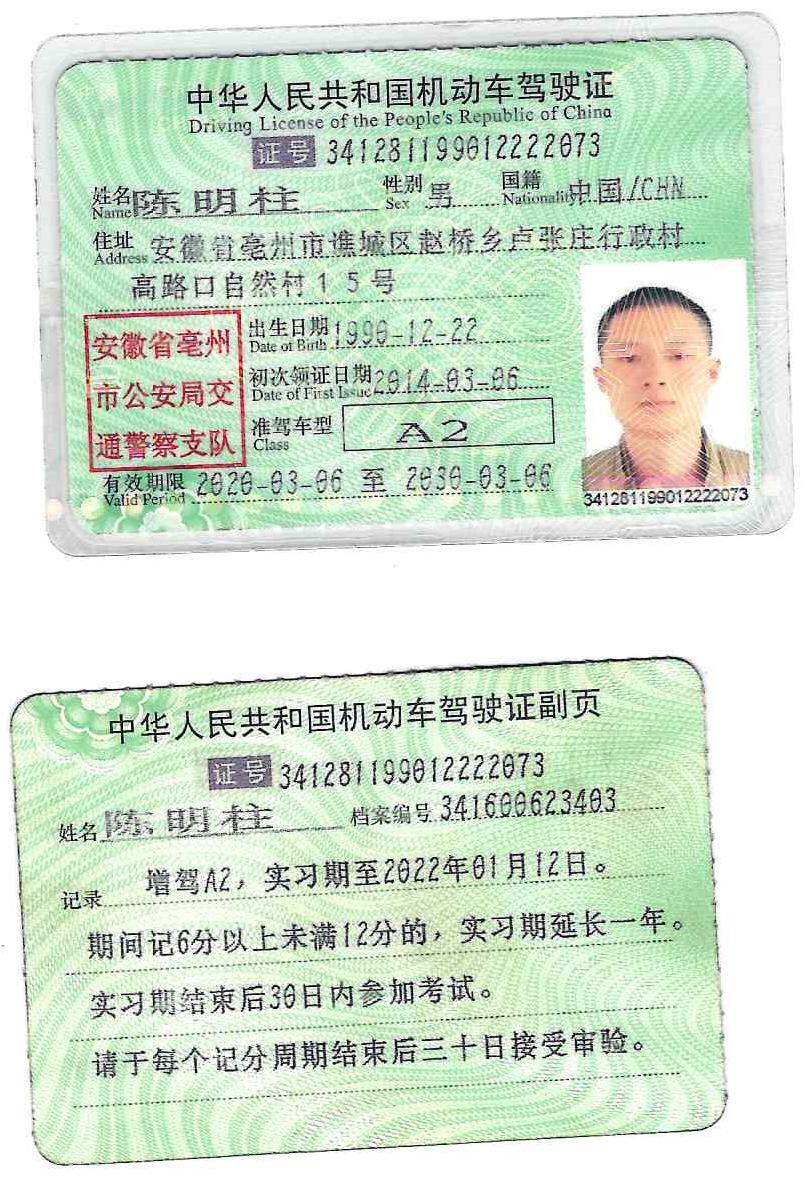 中华人民共和国机动车驾驶证
Driving License of the People's Republic of China
证号 341281199012222073
姓名 陈明柱 性别 男 国籍 中国/CHN
Name Sex Nationality
住址 安徽省亳州市谯城区赵桥乡卢张庄行政村
Address
高路口自然村15号
安徽省亳州
市公安局交
通警察支队
出生日期 1990-12-22
Date of Birth
初次领证日期 2014-03-06
Date of First Issue
准驾车型 A2
Class
有效期限 2020-03-06 至 2030-03-06
Valid Period
341281199012222073
中华人民共和国机动车驾驶证副页
证号 341281199012222073
姓名 陈明柱 档案编号 341600623403
记录 增驾A2，实习期至2022年01月12日。
期间记6分以上未满12分的，实习期延长一年。
实习期结束后30日内参加考试。
请于每个记分周期结束后三十日接受审验。